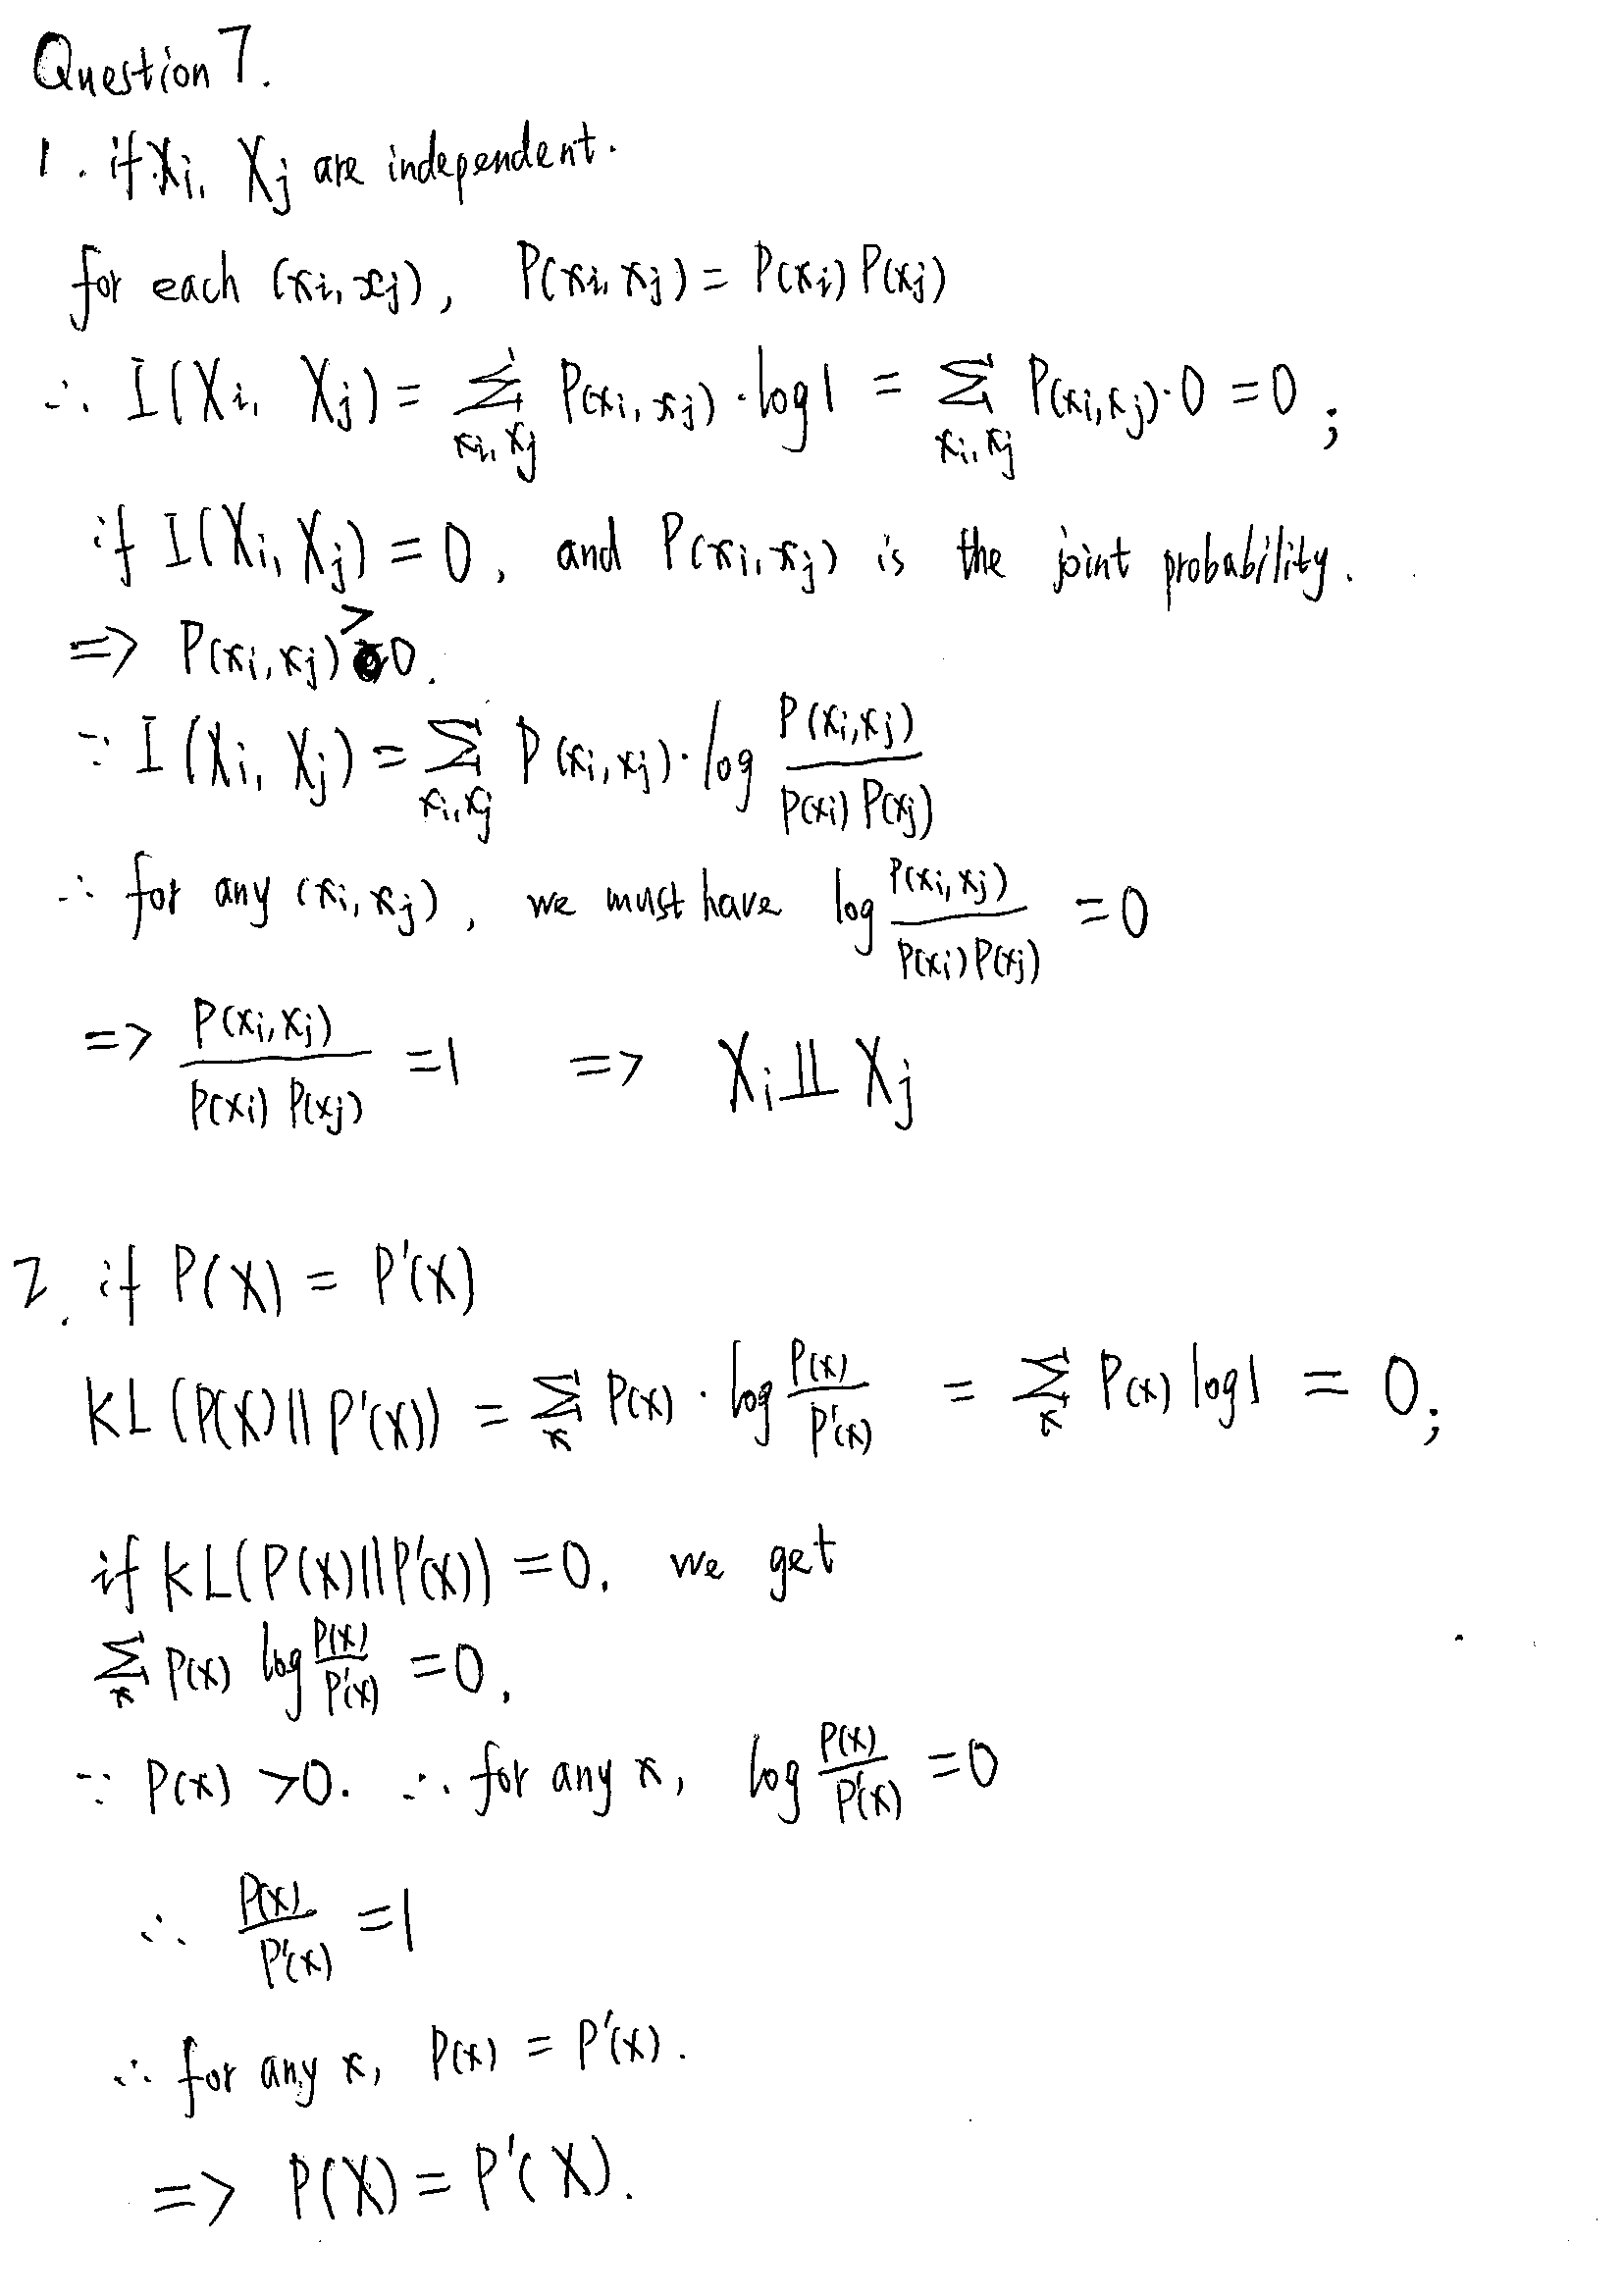 Question 7.
1. if Xi, Xj are independent.
for each (xi, xj), P(xi, xj) = P(xi) P(xj)
∴ I(Xi, Xj) = ∑_{xi, xj} P(xi, xj) · log1 = ∑_{xi, xj} P(xi, xj) · 0 = 0;
if I(Xi, Xj) = 0, and P(xi, xj) is the joint probability.
=> P(xi, xj) > 0.
∵ I(Xi, Xj) = ∑_{xi, xj} P(xi, xj) · log \frac{P(xi, xj)}{P(xi) P(xj)}
∴ for any (xi, xj), we must have log \frac{P(xi, xj)}{P(xi) P(xj)} = 0
=> \frac{P(xi, xj)}{P(xi) P(xj)} = 1 => Xi ⫫ Xj
2. if P(X) = P'(X)
KL(P(X)||P'(X)) = ∑_x P(x) · log \frac{P(x)}{P'(x)} = ∑_x P(x) log1 = 0;
if KL(P(X)||P'(X)) = 0, we get
∑_x P(x) log \frac{P(x)}{P'(x)} = 0,
∵ P(x) > 0. ∴ for any x, log \frac{P(x)}{P'(x)} = 0
∴ \frac{P(x)}{P'(x)} = 1
∴ for any x, P(x) = P'(x).
=> P(X) = P'(X).